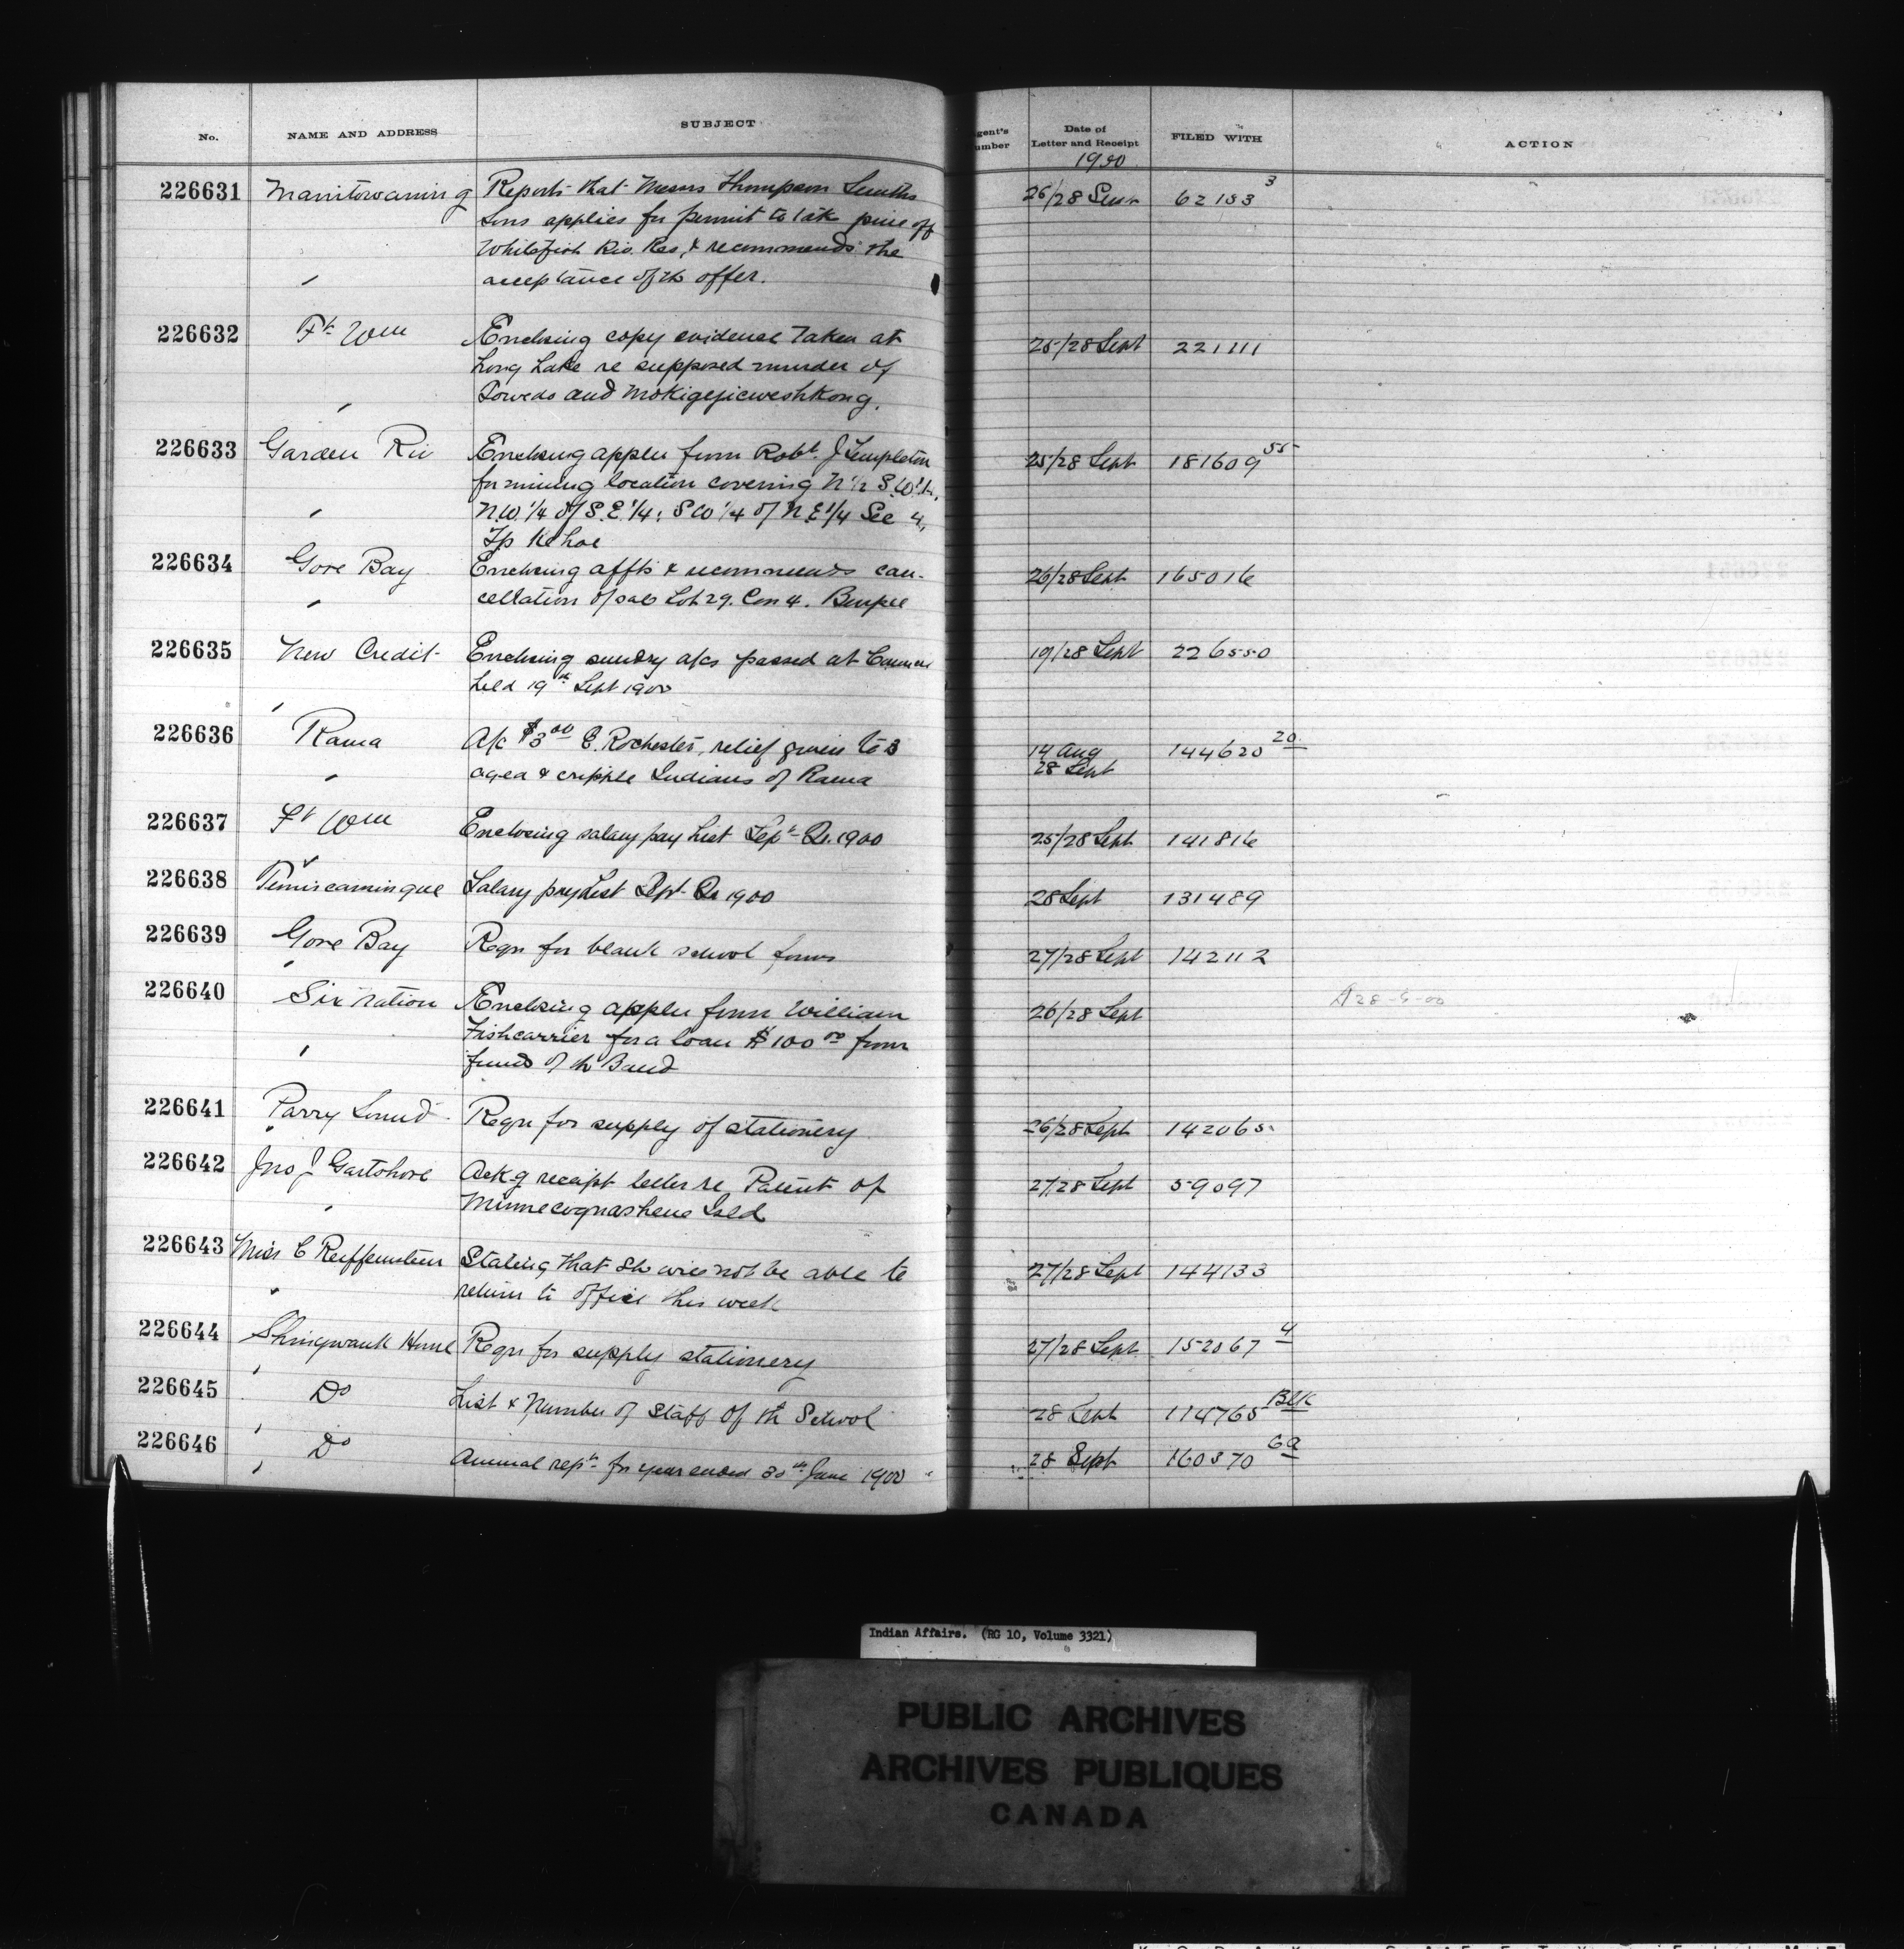 No. NAME AND ADDRESS SUBJECT gent's umber Date of Letter and Receipt FILED WITH ACTION
1900
226631 Manitowaning Reports that Messrs Thompson Smiths 26/28 Sept 62153 3
Sons applies for permit to take pine off
Whitefish Riv. Res, & recommends the
acceptance of th offer.
226632 Ft Wm Enclosing copy evidence taken at 25/28 Sept 221111
Long Lake re supposed murder of
and
226633 Garden Riv Enclosing appln from Robt. J Templeton 25/28 Sept 181609 55
for mining location covering N 1/2 S.W. 1/4,
N.W. 1/4 of S.E. 1/4; S W 1/4 of N E 1/4 Sec 4,
Tp Kehoe
226634 Gore Bay Enclosing affts & recommends can- 26/28 Sept 165016
cellation of sale Lot 29. Con 4. Burpee
226635 New Credit Enclosing sundry a/cs passed at Council 19/28 Sept 226550
held 19th Sept 1900
226636 Rama A/c $3 00 E. Rochester, relief given to 3 14 Aug 144620 20
aged & cripple Indians of Rama 28 Sept
226637 Ft Wm Enclosing salary pay List Sept Qr. 1900 25/28 Sept 141816
226638 Temiscamingue Salary pay List Sept Qr 1900 28 Sept 131489
226639 Gore Bay Reqn for blank school forms 27/28 Sept 142112
226640 Six Nation Enclosing appln from William 26/28 Sept
Fishcarrier for a loan $100 00 from
funds of th Band
226641 Parry Sound Reqn for supply of stationery 26/28 Sept 142065
226642 Jno J Gartshore Ackg receipt letter re Patent of 27/28 Sept 59097
Minnecognashene Isld
226643 Miss C Reiffenstein Stating that sh will not be able to 27/28 Sept 144133
return to office this week
226644 Shingwauk Home Reqn for supply stationery 27/28 Sept 152067 4
226645 Do List & Number of Staff of th School 28 Sept 114765 Blk
226646 Do Annual rept for year ended 30th June 1900 28 Sept 160370 6a
Indian Affairs. (RG 10, Volume 3321)
PUBLIC ARCHIVES
ARCHIVES PUBLIQUES
CANADA